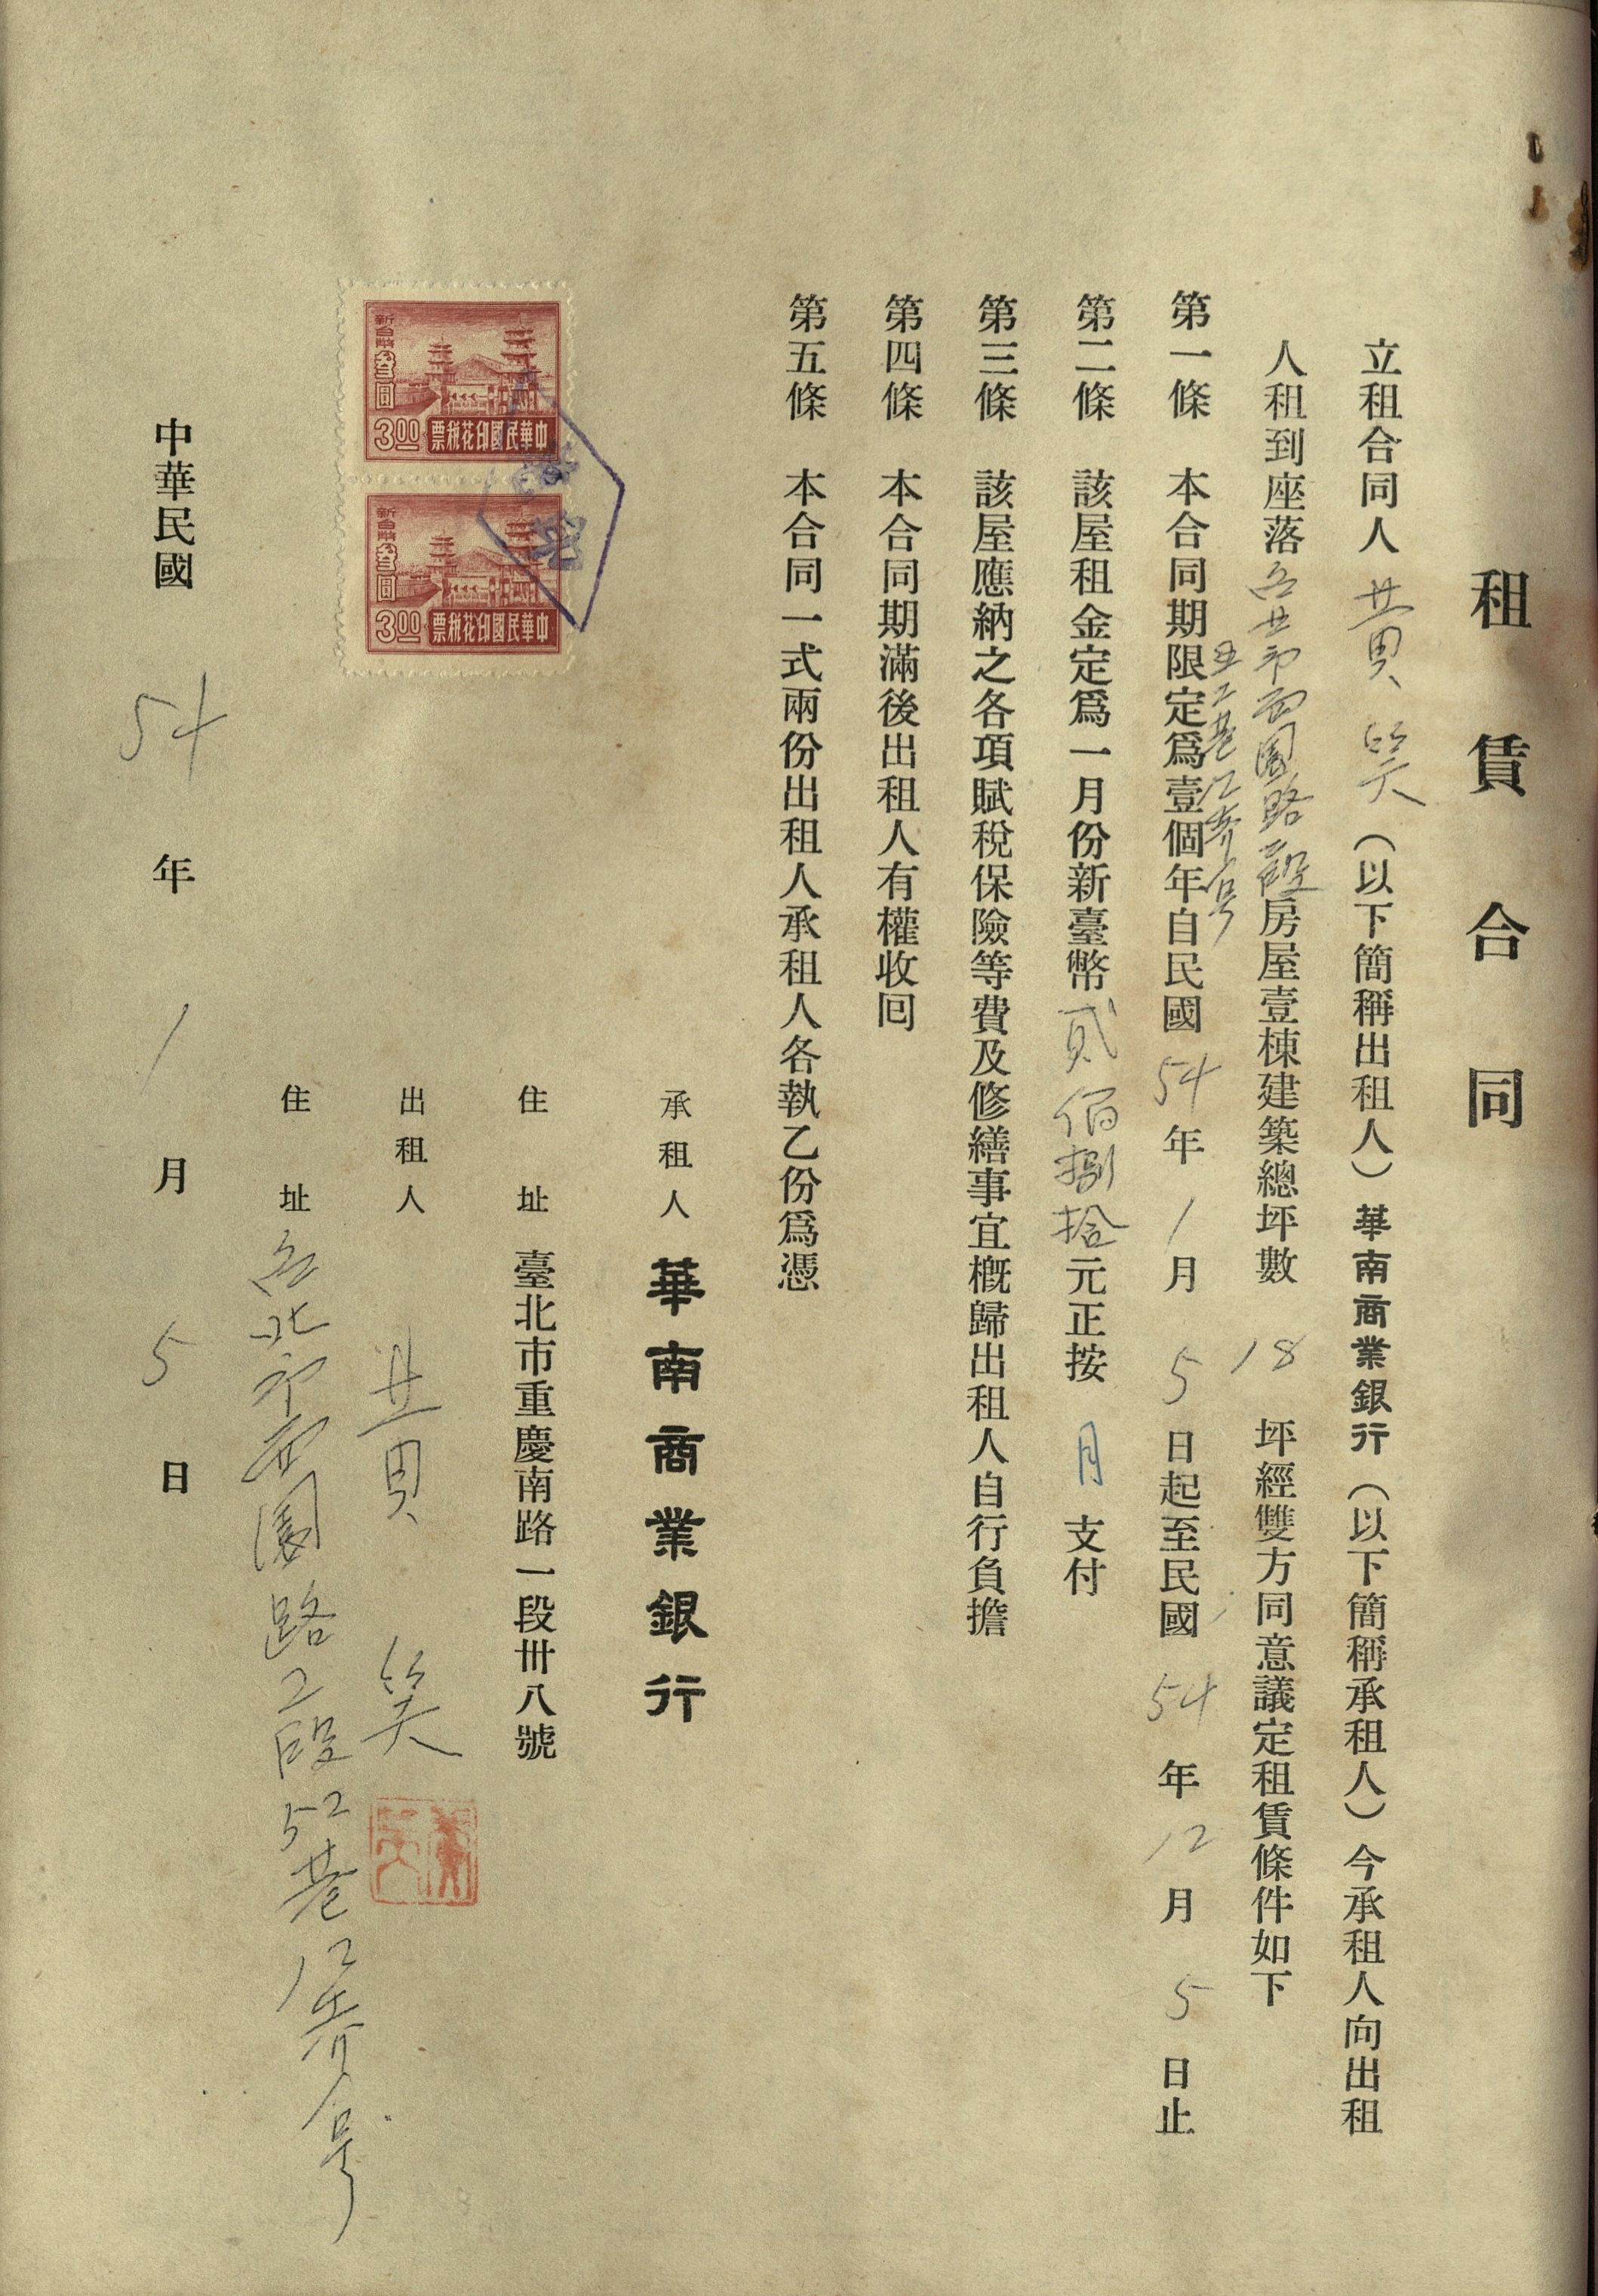 租賃合同
立租合同人黃笑(以下簡稱出租人)華南商業銀行(以下簡稱承租人)今承租人向出租
人租到座落台北市西園路二段房屋壹棟建築總坪數18坪經雙方同意議定租賃條件如下
五二巷12弄号
第一條 本合同期限定爲壹個年自民國54年1月5日起至民國54年12月5日止
第二條 該屋租金定爲一月份新臺幣貳佰捌拾元正按月支付
第三條 該屋應納之各項賦稅保險等費及修繕事宜概歸出租人自行負擔
第四條 本合同期滿後出租人有權收回
第五條 本合同一式兩份出租人承租人各執乙份爲憑
承租人 華南商業銀行
住址 臺北市重慶南路一段卅八號
出租人 黃笑
住址 台北市西園路2段52巷12弄号
新台幣叁圓
3.00 中華民國印花稅票
新台幣叁圓
3.00 中華民國印花稅票
中華民國54年1月5日